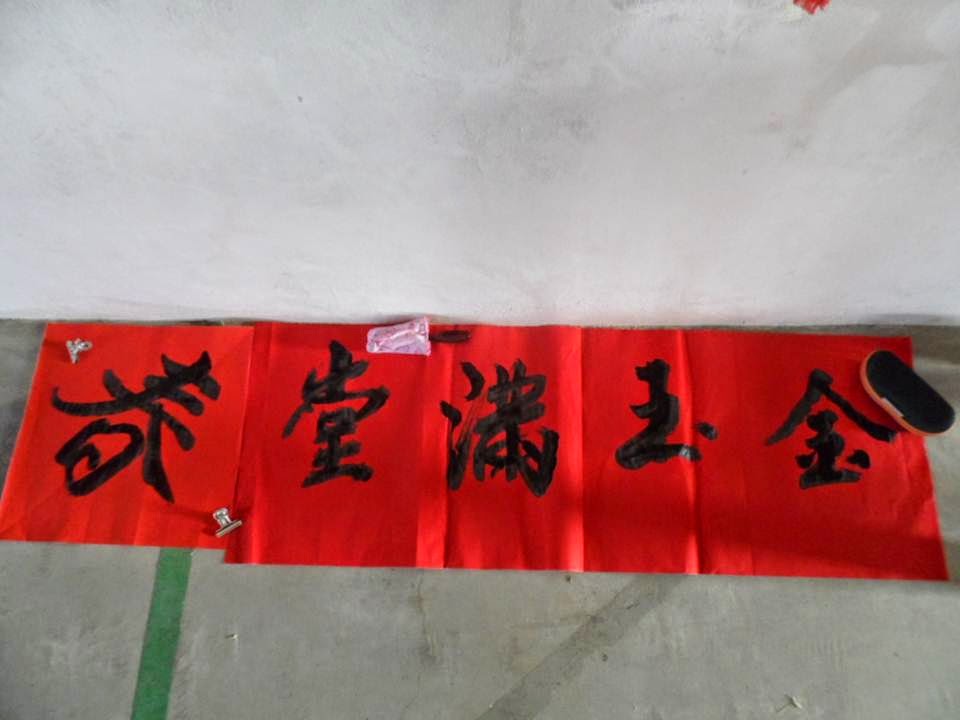 金玉滿堂
春